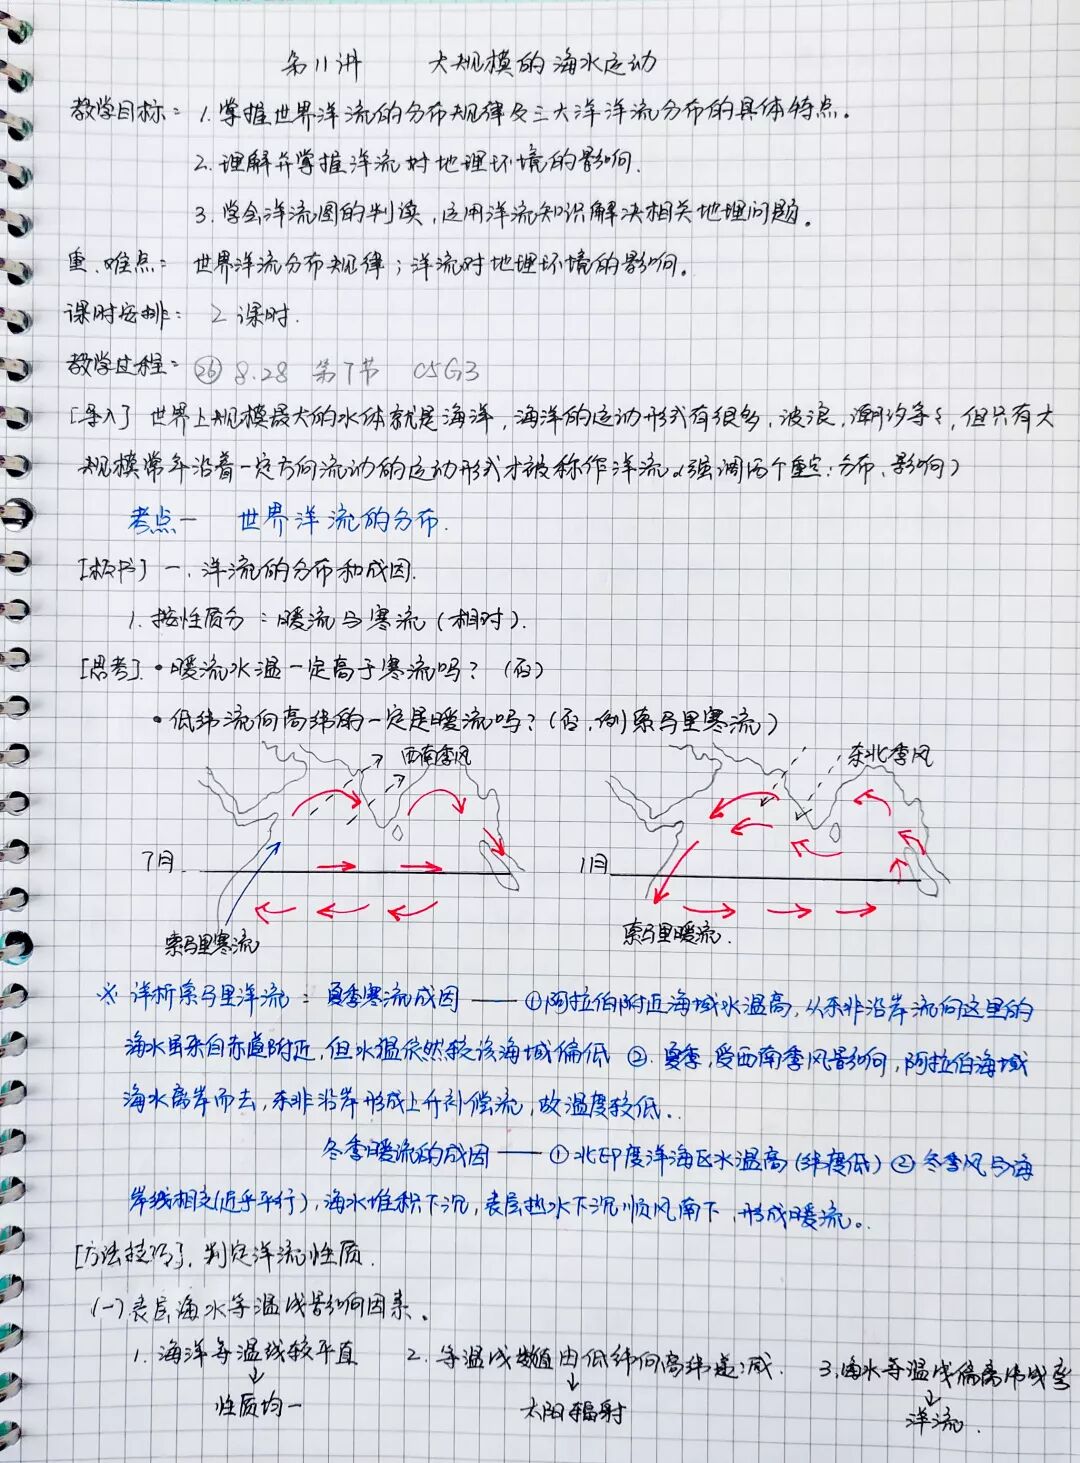 第11讲 大规模的海水运动
教学目标: 1. 掌握世界洋流的分布规律及三大洋洋流分布的具体特点。
2. 理解并掌握洋流对地理环境的影响.
3. 学会洋流图的判读,运用洋流知识解决相关地理问题。
重、难点: 世界洋流分布规律;洋流对地理环境的影响。
课时安排: 2课时.
教学过程: ㉖ 8.28 第7节 C5G3
[导入] 世界上规模最大的水体就是海洋,海洋的运动形式有很多,波浪,潮汐等等,但只有大
规模常年沿着一定方向流动的运动形式才被称作洋流。(强调两个重点:分布、影响)
考点一 世界洋流的分布.
[板书] 一、洋流的分布和成因.
1. 按性质分:暖流与寒流(相对).
[思考]. • 暖流水温一定高于寒流吗?(否)
• 低纬流向高纬的一定是暖流吗?(否,例索马里寒流)
西南季风
东北季风
7月
1月
索马里寒流
索马里暖流.
※ 详析索马里洋流: 夏季寒流成因——①阿拉伯附近海域水温高,从东非沿岸流向这里的
海水虽来自赤道附近,但水温依然较该海域偏低 ②. 夏季,受西南季风影响,阿拉伯海域
海水离岸而去,东非沿岸形成上升补偿流,故温度较低..
冬季暖流的成因——①北印度洋海区水温高(纬度低) ②冬季风与海
岸线相交(近乎平行),海水堆积下沉,表层热水下沉顺风南下,形成暖流。.
[方法技巧]. 判定洋流性质.
(一)表层海水等温线影响因素。
1. 海洋等温线较平直 2. 等温线数值由低纬向高纬递减. 3. 海水等温线偏离纬线弯
↓ ↓ ↓
性质均一 太阳辐射 洋流.